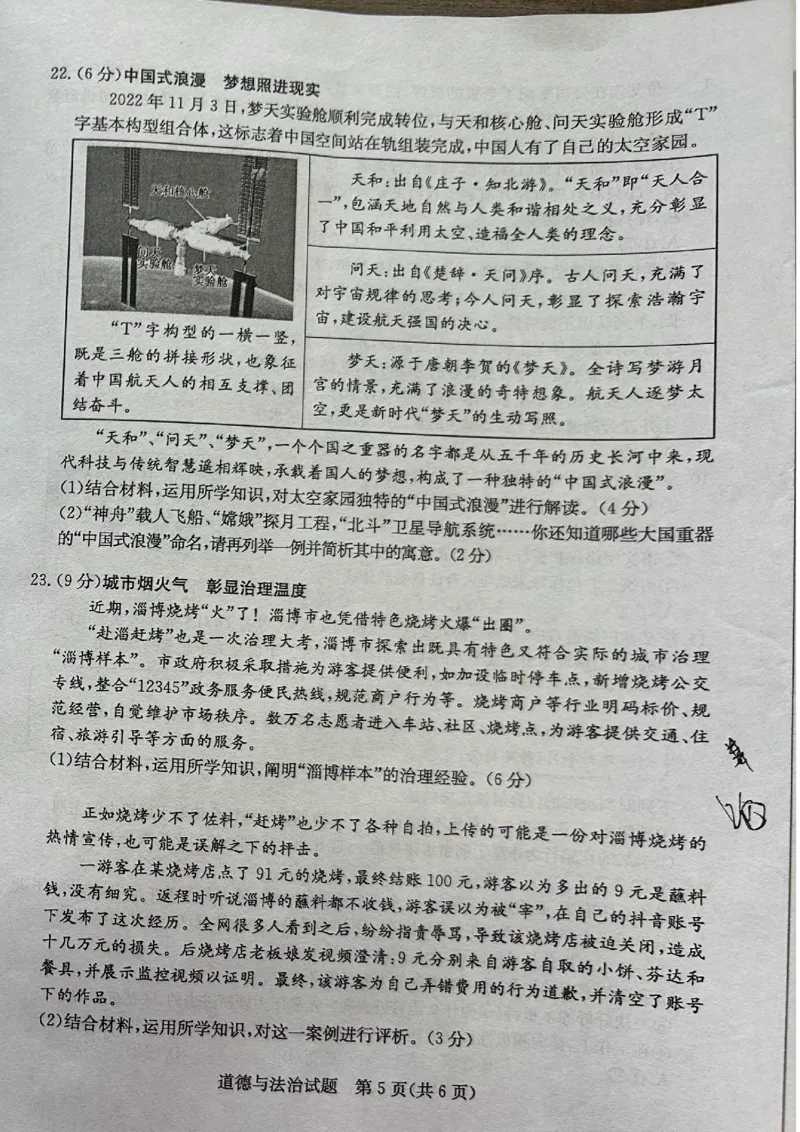 22.(6分)中国式浪漫 梦想照进现实
2022年11月3日,梦天实验舱顺利完成转位,与天和核心舱、问天实验舱形成“T”
字基本构型组合体,这标志着中国空间站在轨组装完成,中国人有了自己的太空家园。
天和核心舱
问天
实验舱
梦天
实验舱
“T”字构型的一横一竖,
既是三舱的拼接形状,也象征
着中国航天人的相互支撑、团
结奋斗。
天和:出自《庄子·知北游》。“天和”即“天人合
一”,包涵天地自然与人类和谐相处之义,充分彰显
了中国和平利用太空、造福全人类的理念。
问天:出自《楚辞·天问》序。古人问天,充满了
对宇宙规律的思考;今人问天,彰显了探索浩瀚宇
宙,建设航天强国的决心。
梦天:源于唐朝李贺的《梦天》。全诗写梦游月
宫的情景,充满了浪漫的奇特想象。航天人逐梦太
空,更是新时代“梦天”的生动写照。
“天和”、“问天”、“梦天”,一个个国之重器的名字都是从五千年的历史长河中来,现
代科技与传统智慧遥相辉映,承载着国人的梦想,构成了一种独特的“中国式浪漫”。
(1)结合材料,运用所学知识,对太空家园独特的“中国式浪漫”进行解读。(4分)
(2)“神舟”载人飞船、“嫦娥”探月工程,“北斗”卫星导航系统……你还知道哪些大国重器
的“中国式浪漫”命名,请再列举一例并简析其中的寓意。(2分)
23.(9分)城市烟火气 彰显治理温度
近期,淄博烧烤“火”了!淄博市也凭借特色烧烤火爆“出圈”。
“赴淄赶烤”也是一次治理大考,淄博市探索出既具有特色又符合实际的城市治理
“淄博样本”。市政府积极采取措施为游客提供便利,如加设临时停车点,新增烧烤公交
专线,整合“12345”政务服务便民热线,规范商户行为等。烧烤商户等行业明码标价、规
范经营,自觉维护市场秩序。数万名志愿者进入车站、社区、烧烤点,为游客提供交通、住
宿、旅游引导等方面的服务。
(1)结合材料,运用所学知识,阐明“淄博样本”的治理经验。(6分)
正如烧烤少不了佐料,“赶烤”也少不了各种自拍,上传的可能是一份对淄博烧烤的
热情宣传,也可能是误解之下的抨击。
一游客在某烧烤店点了91元的烧烤,最终结账100元,游客以为多出的9元是蘸料
钱,没有细究。返程时听说淄博的蘸料都不收钱,游客误以为被“宰”,在自己的抖音账号
下发布了这次经历。全网很多人看到之后,纷纷指责辱骂,导致该烧烤店被迫关闭,造成
十几万元的损失。后烧烤店老板娘发视频澄清:9元分别来自游客自取的小饼、芬达和
餐具,并展示监控视频以证明。最终,该游客为自己弄错费用的行为道歉,并清空了账号
下的作品。
(2)结合材料,运用所学知识,对这一案例进行评析。(3分)
道德与法治试题 第5页(共6页)